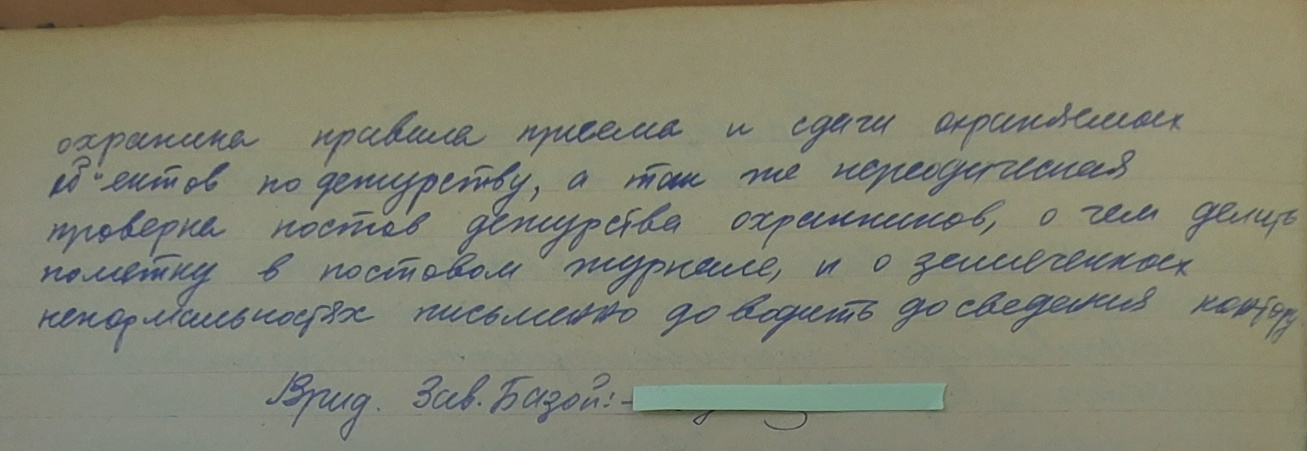 охраника правила приема и сдачи охраняемых
об"ектов по дежурству, а так же переодическая
проверка постов дежурства охранников, о чем делить
пометку в постовом журнале, и о замеченных
ненормальностях письменно доводить до сведения контору
Врид. Зав. Базой:-